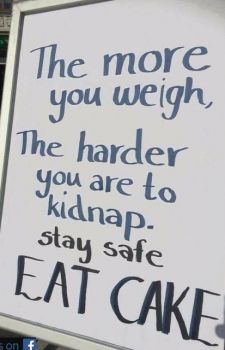 The more
you weigh,
The harder
you are to
kidnap.
stay safe
EAT CAKE
s on f